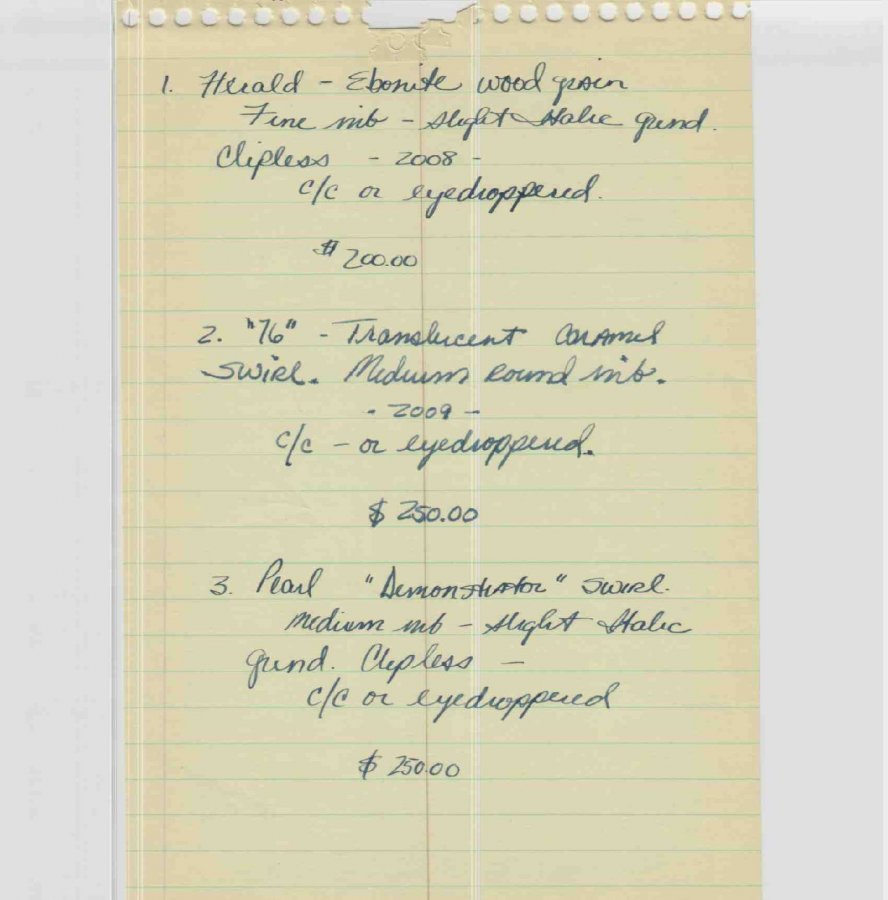 1. Herald - Ebonite wood grain
Fine nib - slight Italic grind.
Clipless - 2008 -
c/c or eyedroppered.
$200.00
2. "76" - Translucent Caramel
Swirl. Medium Round nib.
- 2009 -
c/c - or eyedroppered.
$ 250.00
3. Pearl "Demonstrator" swirl.
medium nib - slight Italic
grind. Clipless -
c/c or eyedroppered
$ 250.00